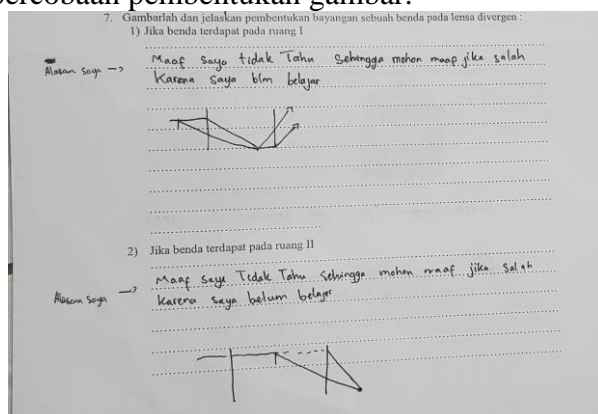 percobaan pembentukan gambar.
7. Gambarlah dan jelaskan pembentukan bayangan sebuah benda pada lensa divergen :
1) Jika benda terdapat pada ruang I
Alasan Saya → Maaf Saya tidak Tahu Sehingga mohon maap jika salah
Karena Saya blm belajar
2) Jika benda terdapat pada ruang II
Alasan Saya → Maaf Saya Tidak Tahu sehingga mohon maaf jika salah
Karena saya belum belajar